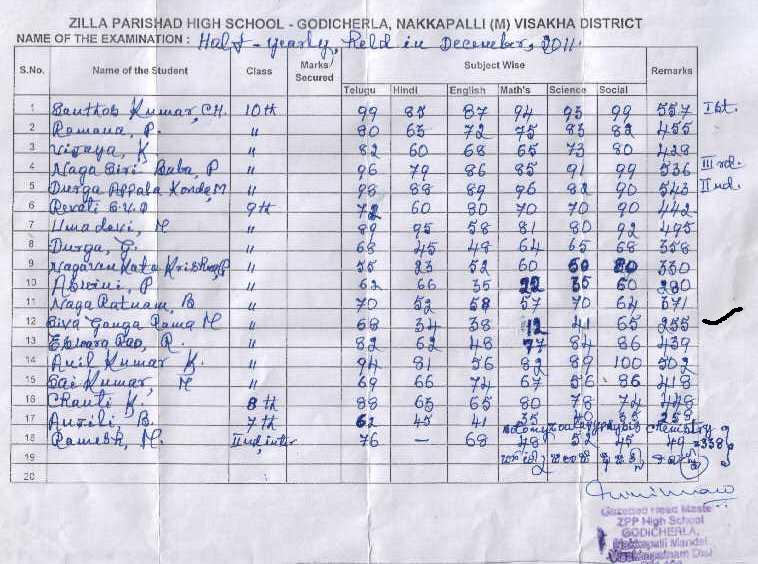 ZILLA PARISHAD HIGH SCHOOL - GODICHERLA, NAKKAPALLI (M) VISAKHA DISTRICT
NAME OF THE EXAMINATION : Half-yearly, Held in December, 2011.
S.No. Name of the Student Class Marks Secured Subject Wise Remarks
Telugu Hindi English Math's Science Social
1 Santhosh Kumar, CH. 10th 99 85 87 94 93 99 557 Ist.
2 Ramana, P. " 80 63 72 75 83 82 455
3 Vijaya, K " 82 60 68 65 73 80 428
4 Naga Siri Baba, P " 96 79 86 85 91 99 536 IIIrd.
5 Durga Appala Konda, M " 98 88 89 96 82 90 543 IInd.
6 Revati 9th 72 60 80 70 70 90 442
7 Umadevi, M " 89 95 58 81 80 92 495
8 Durga, G. " 68 45 48 64 65 68 358
9 " 55 23 52 60 60 80 330
10 Aswini, P " 62 66 35 22 35 60 280
11 Naga Ratnam, B " 70 52 58 57 70 64 371
12 Siva Ganga Rama M " 68 34 38 12 41 65 255
13 Eswara Rao, R. " 82 62 48 77 84 86 439
14 Anil Kumar K. " 94 81 56 82 89 100 502
15 Sai Kumar, M " 69 66 74 67 56 86 418
16 Chanti K. 8th 88 65 65 80 78 72 448
17 B. 7th 62 45 41 35 40 35 258
Botany Zoology Physics Chemistry
18 Ramesh, M. IInd, inter 76 – 68 48 52 45 49 =338
19
20
Gazetted Head Master
ZPP High School
GODICHERLA,
Nakkapalli Mandal
Visakhapatnam Dist